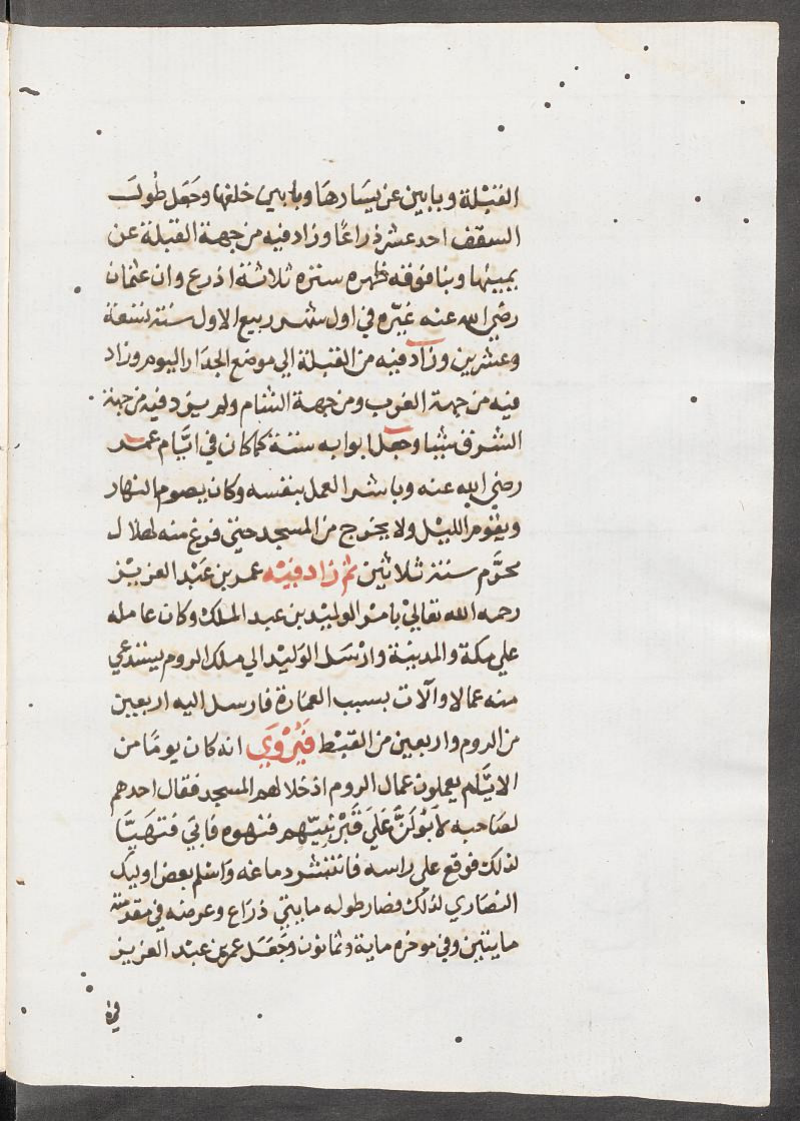 القبلة وبابين عن يسارها وبابين خلفها وجعل طول
السقف احد عشر ذراعًا وزاد فيه من جهة القبلة عن
يمينها وبنا فوقه ظهره سترة ثلاثة اذرع وان عثمان
رضي الله عنه غيّره في اول شهر ربيع الاول سنة تسعة
وعشرين وزاد فيه من القبلة الي موضع الجدار اليوم وزاد
فيه من جهة الغرب ومن جهة الشام ولم يزد فيه من جهة
الشرق شيا وجعل ابوابه ستة كما كان في ايّام عمر
رضي الله عنه وباشر العمل بنفسه وكان يصوم النهار
ويقوم الليل ولا يخرج من المسجد حتي فرغ منه لهلال
محرّم سنة ثلاثين ثم زاد فيه عمر بن عبد العزيز
رحمه الله تعالي بامر الوليد بن عبد الملك وكان عامله
علي مكة والمدينة وارسل الوليد الي ملك الروم يستدعي
منه عمالا وآلات بسبب العمارة فارسل اليه اربعين
من الروم واربعين من القبط فيروي انه كان يومًا من
الايّام يعملون عمال الروم اذ خلا لهم المسجد فقال احدهم
لصاحبه لأبولنّ علي قبر نبيّهم فنهوه فابي فتهيّا
لذلك فوقع علي راسه فانتشر دماغه واسلم بعض اوليك
النصاري لذلك فصار طوله مايتي ذراع وعرضه في مقدمته
مايتين وفي موخره ماية وثمانون وجعل عمر بن عبد العزيز
في